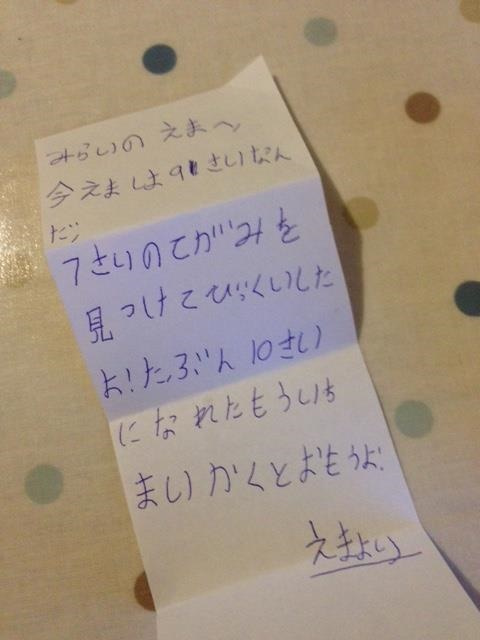 みらいの えまへ
今えまは9さいなん
だ
7さいのてがみを
見つけてびっくいした
よ!たぶん 10さい
になれたもういち
まいかくとおもうよ!
えまより